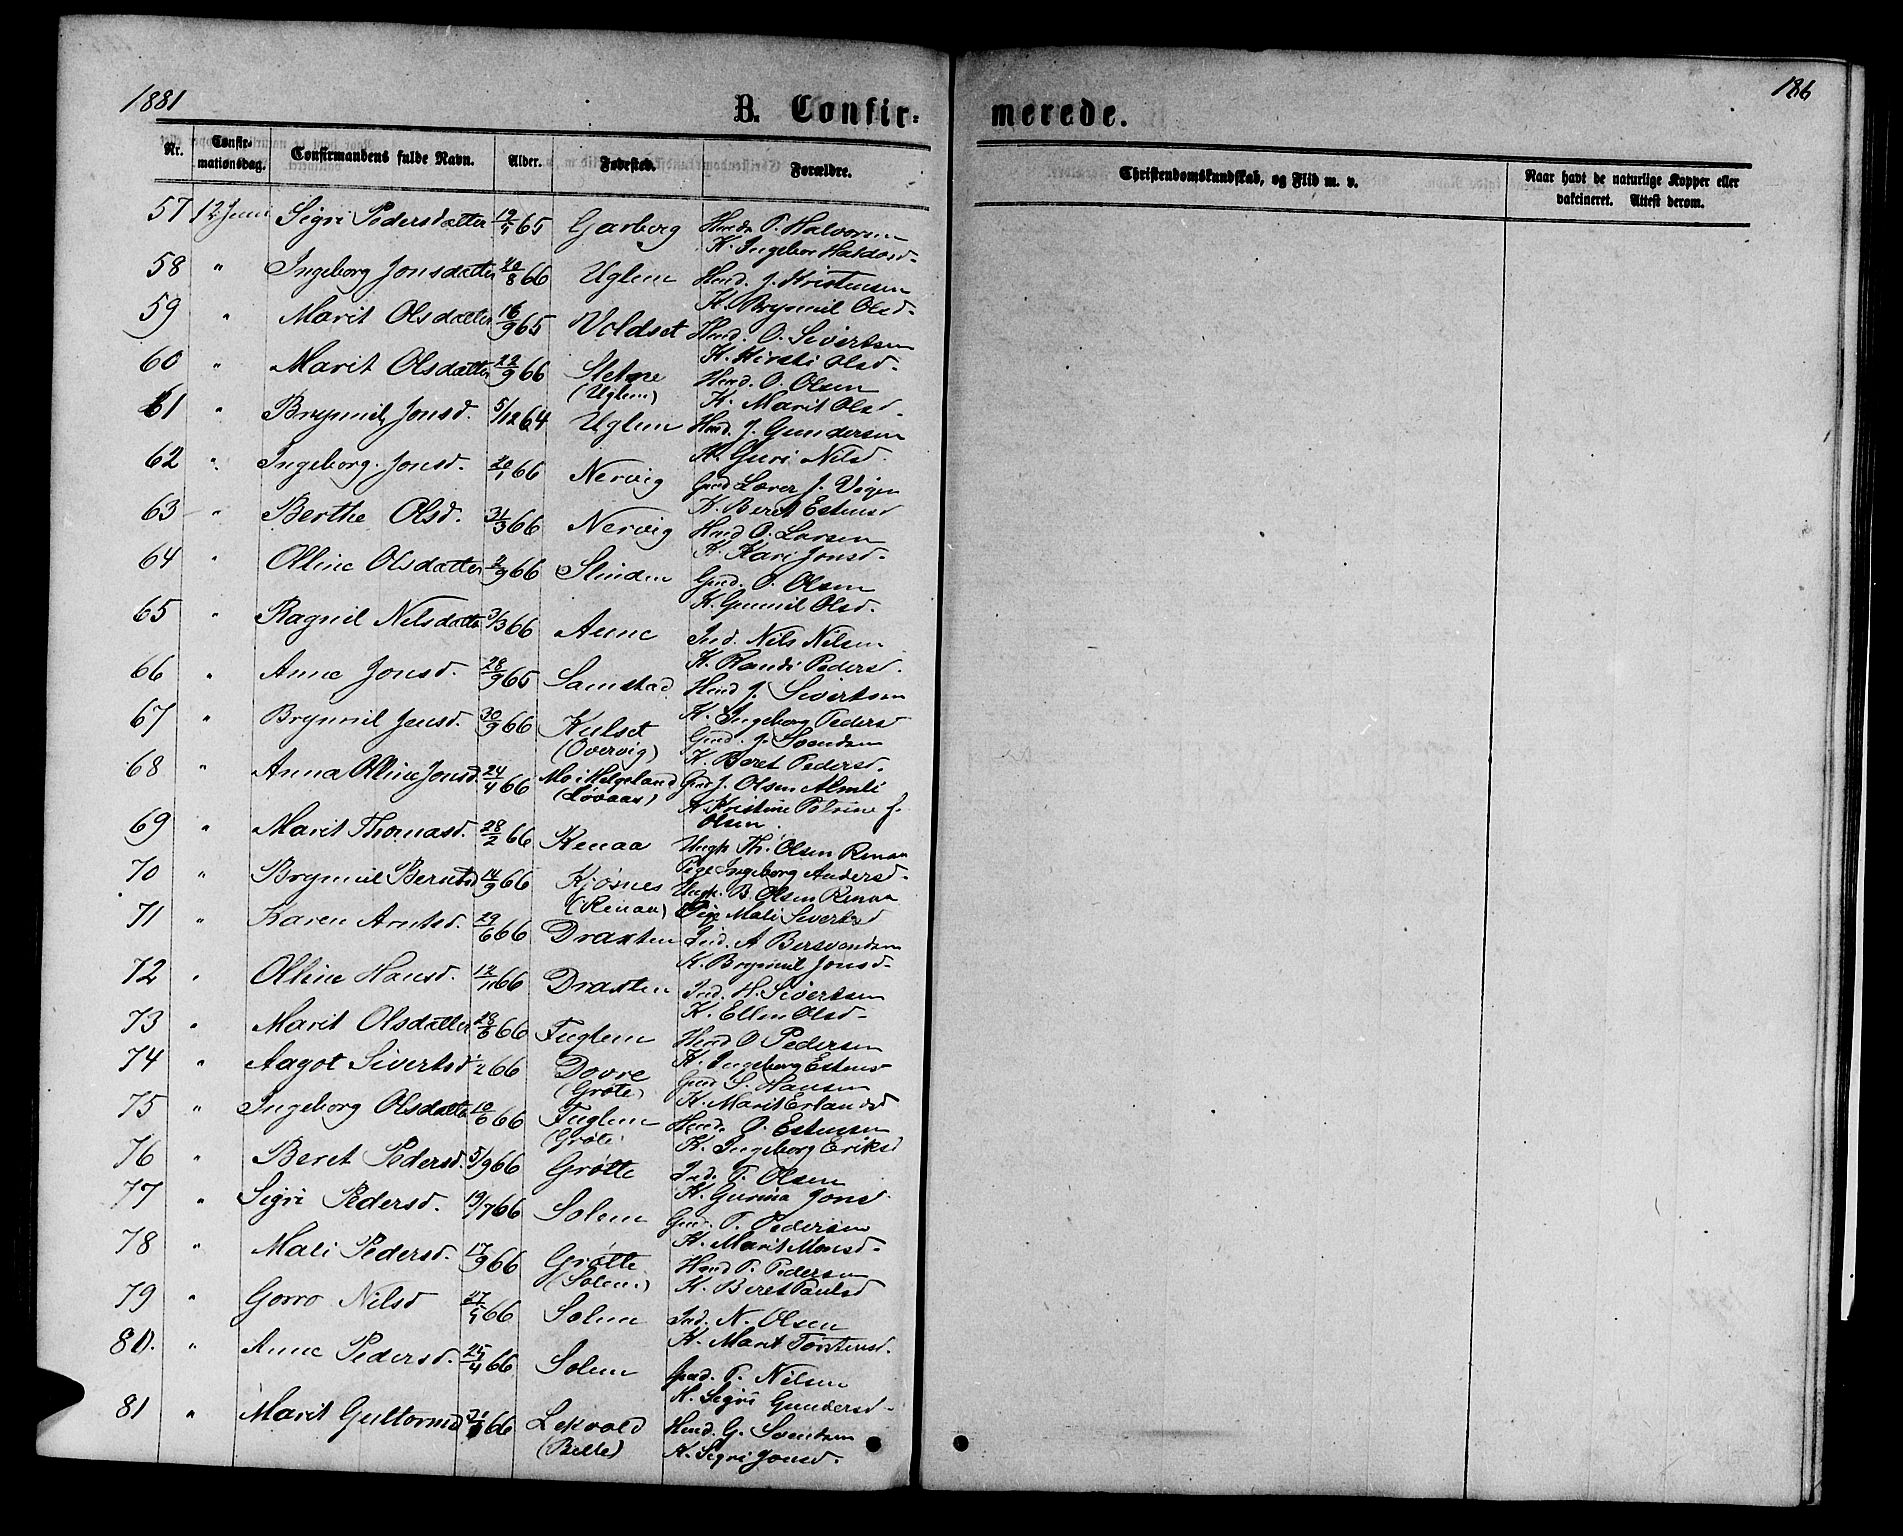 1881
186
B. Confir-
merede.
Nr.
Confir-
mationsdag.
Confirmandens fulde Navn.
Alder.
Fødested.
Forældre.
Christendomskundskab, og Flid m. v.
Naar havt de naturlige Kopper eller
vakcineret. Attest derom.
57 12 Juni Sigri Pedersdatter 65 Garberg Hmd. P. Halvorsen
K. Ingebor Haldosd.
58 " Ingeborg Jonsdatter 20/8 66 Uglem Hmd. J. Kristensen
K. Brynnil Olsd.
59 " Marit Olsdatter 16/9 65 Voldset Hmd. O. Sivertsen
K. Kirsti Olsd.
60 " Marit Olsdatter 22/9 66 Hmd. O. Olsen
(Uglem) K. Marit Olsd.
61 " Brynnil Jonsd. 5/12 64 Uglem Hmd. J. Gundersen
K. Guri Nilsd.
62 " Ingeborg Jonsd. 66 Nervig Gmd Lærer J. Vigen
K. Beret Estensd
63 " Berthe Olsd. 31/3 66 Nervig Hmd O. Larsen
K. Kari Jonsd.
64 " Olline Olsdatter 66 Slinden Gmd. O. Olsen
K. Gunnil Olsd.
65 " Ragnil Nilsdatter 3/3 66 Aune Ind. Nils Nilsen
K. Randi Pedersd.
66 " Anne Jonsd. 28/9 65 Samstad Hmd J. Sivertsen
K. Ingeborg Pedersd
67 " Brynnil Jonsd. 30/9 66 Kulset Gmd. J. Svendsen
(Overvig) K. Beret Pedersd.
68 " Anna Olline Jonsd. 24/4 66 Mo i Helgeland Gmd J. Olsen Almli
(Løvaas) K. Kristine Petrine J.
Olsen
69 " Marit Thomasd. 28/2 66 Renaa Ungk. Th. Olsen Renaa
Pige Ingeborg Andersd.
70 " Brynnil Berntsd 14/9 66 Kjøsnes Ungk. B. Olsen Renaa
(Renaa) Pige Mali Sivertsd
71 " Karen Arntsd. 29/6 66 Draxten Ind. A Bersvendsen
K. Brynnil Jonsd.
72 " Olline Hansd. 66 Draxten Ind. H. Sivertsen
K. Ellen Olsd.
73 " Marit Olsdatter 66 Fuglem Hmd O Pedersen
K. Ingeborg Estensd
74 " Aagot Sivertsd 66 Dovre Gmd S. Hansen
(Grøte) K. Marit Erlandsd
75 " Ingeborg Olsdatter 66 Fuglem Hmd. O. Estensen
(Grøte) K. Ingeborg Eriksd
76 " Beret Pedersd. 5/9 66 Grøtte Ind. P. Olsen
K. Gurina Jonsd
77 " Sigri Pedersd. 19/7 66 Solem Gmd. P. Pedersen
K. Marit Monsd.
78 " Mali Pedersd. 17/9 66 Grøtte Hmd P. Pedersen
(Solem) K. Beret Paulsd
79 " Gorro Nilsd 66 Solem Ind. N. Olsen
K. Marit Torstensd.
80. " Anne Pedersd. 25/4 66 Solem Gmd. P. Nilsen
K. Sigri Gundersd.
81 " Marit Guttormsd 66 Lekvold Hmd. G. Svendsen
(Balle) K. Sigri Jonsd.